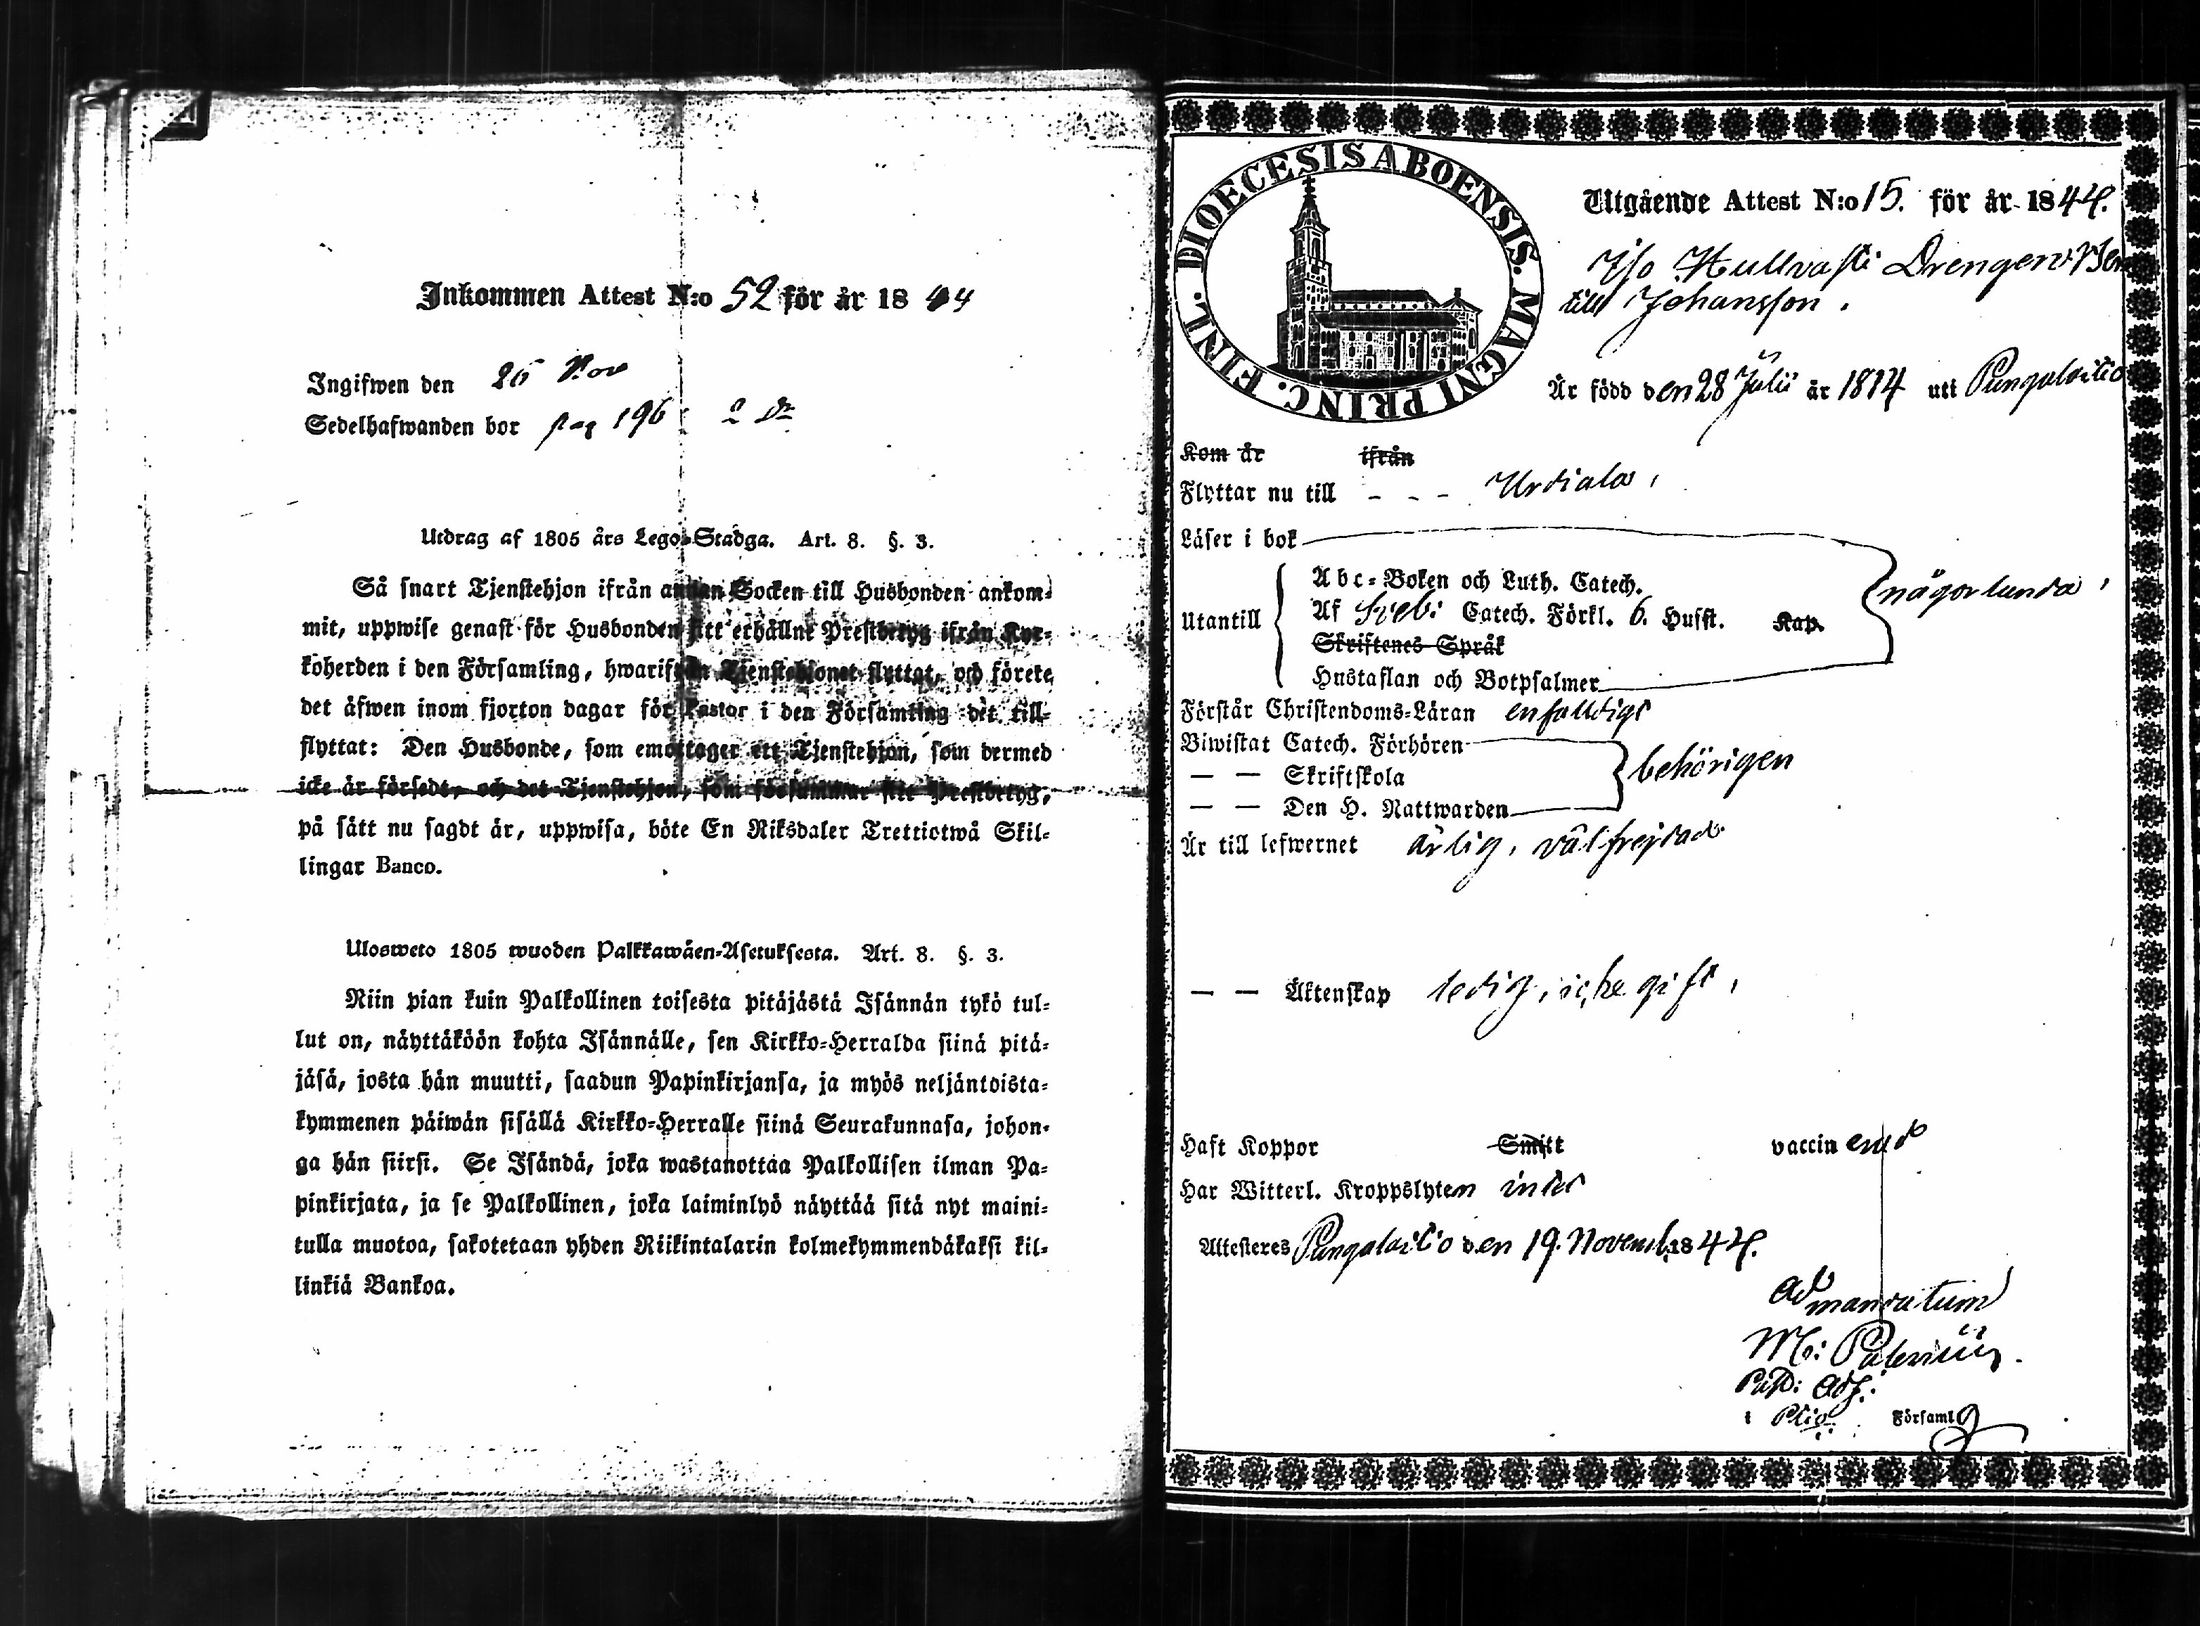 Inkommen Attest N:o 52 för år 1844
Ingifwen den 26 Nov
Sedelhafwanden bor pag 196
Utdrag af 1805 års Lego-Stadga. Art. 8. §. 3.
Så snart Tjenstehjon ifrån annan Socken till Husbonden ankom-
mit, uppwise genast för Husbonden sitt erhållne Prestbetyg ifrån Kyr-
koherden i den Församling, hwarifrån Tjenstehjonet flyttat, och förete
det äfwen inom fjorton dagar för Pastor i den Församling det till-
flyttat: Den Husbonde, som emottager ett Tjenstehjon, som dermed
icke är försedt, och det Tjenstehjon, som försummar sitt Prestbetyg,
på sätt nu sagdt är, uppwisa, böte En Riksdaler Trettiotwå Skil-
lingar Banco.
Ulosweto 1805 wuoden Palkkawäen-Asetuksesta. Art. 8. §. 3.
Niin pian kuin Palkollinen toisesta pitäjästä Isännän tykö tul-
lut on, näyttäköön kohta Isännälle, sen Kirkko-Herralda siinä pitä-
jäsä, josta hän muutti, saadun Papinkirjansa, ja myös neljäntoista-
kymmenen päiwän sisällä Kirkko-Herralle siinä Seurakunnasa, johon-
ga hän siirsi. Se Isändä, joka wastanottaa Palkollisen ilman Pa-
pinkirjata, ja se Palkollinen, joka laiminlyö näyttää sitä nyt maini-
tulla muotoa, sakotetaan yhden Riikintalarin kolmekymmendäkaksi kil-
linkiä Bankoa.
DIOECESIS ABOENSIS. MAGNI PRINC. FINL.
Utgående Attest N:o 15. för år 1844.
Drengen
Johansson.
Är född den 28 Julii år 1814 uti Pungalaitio
Kom år ifrån
Flyttar nu till - - - Urdiala,
Läser i bok
Utantill
Abc-Boken och Luth. Catech.
Af Catech. Förkl. 6. Husst. Kap.
Skriftenes Språk
Hustaflan och Botpsalmer
någorlunda,
Förstår Christendoms-Läran enfaldigt
Biwistat Catech. Förhören
— — Skriftskola
— — Den H. Nattwarden
behörigen
Är till lefwernet ärlig, välfrejdad
— — Äktenskap ledig, icke gift,
Haft Koppor Smitt vaccinerad
Har Witterl. Kroppslyten intet
Attesteres Pungalaitio den 19. Novemb. 1844.
ad mandatum
Past: Adj:
i Församl